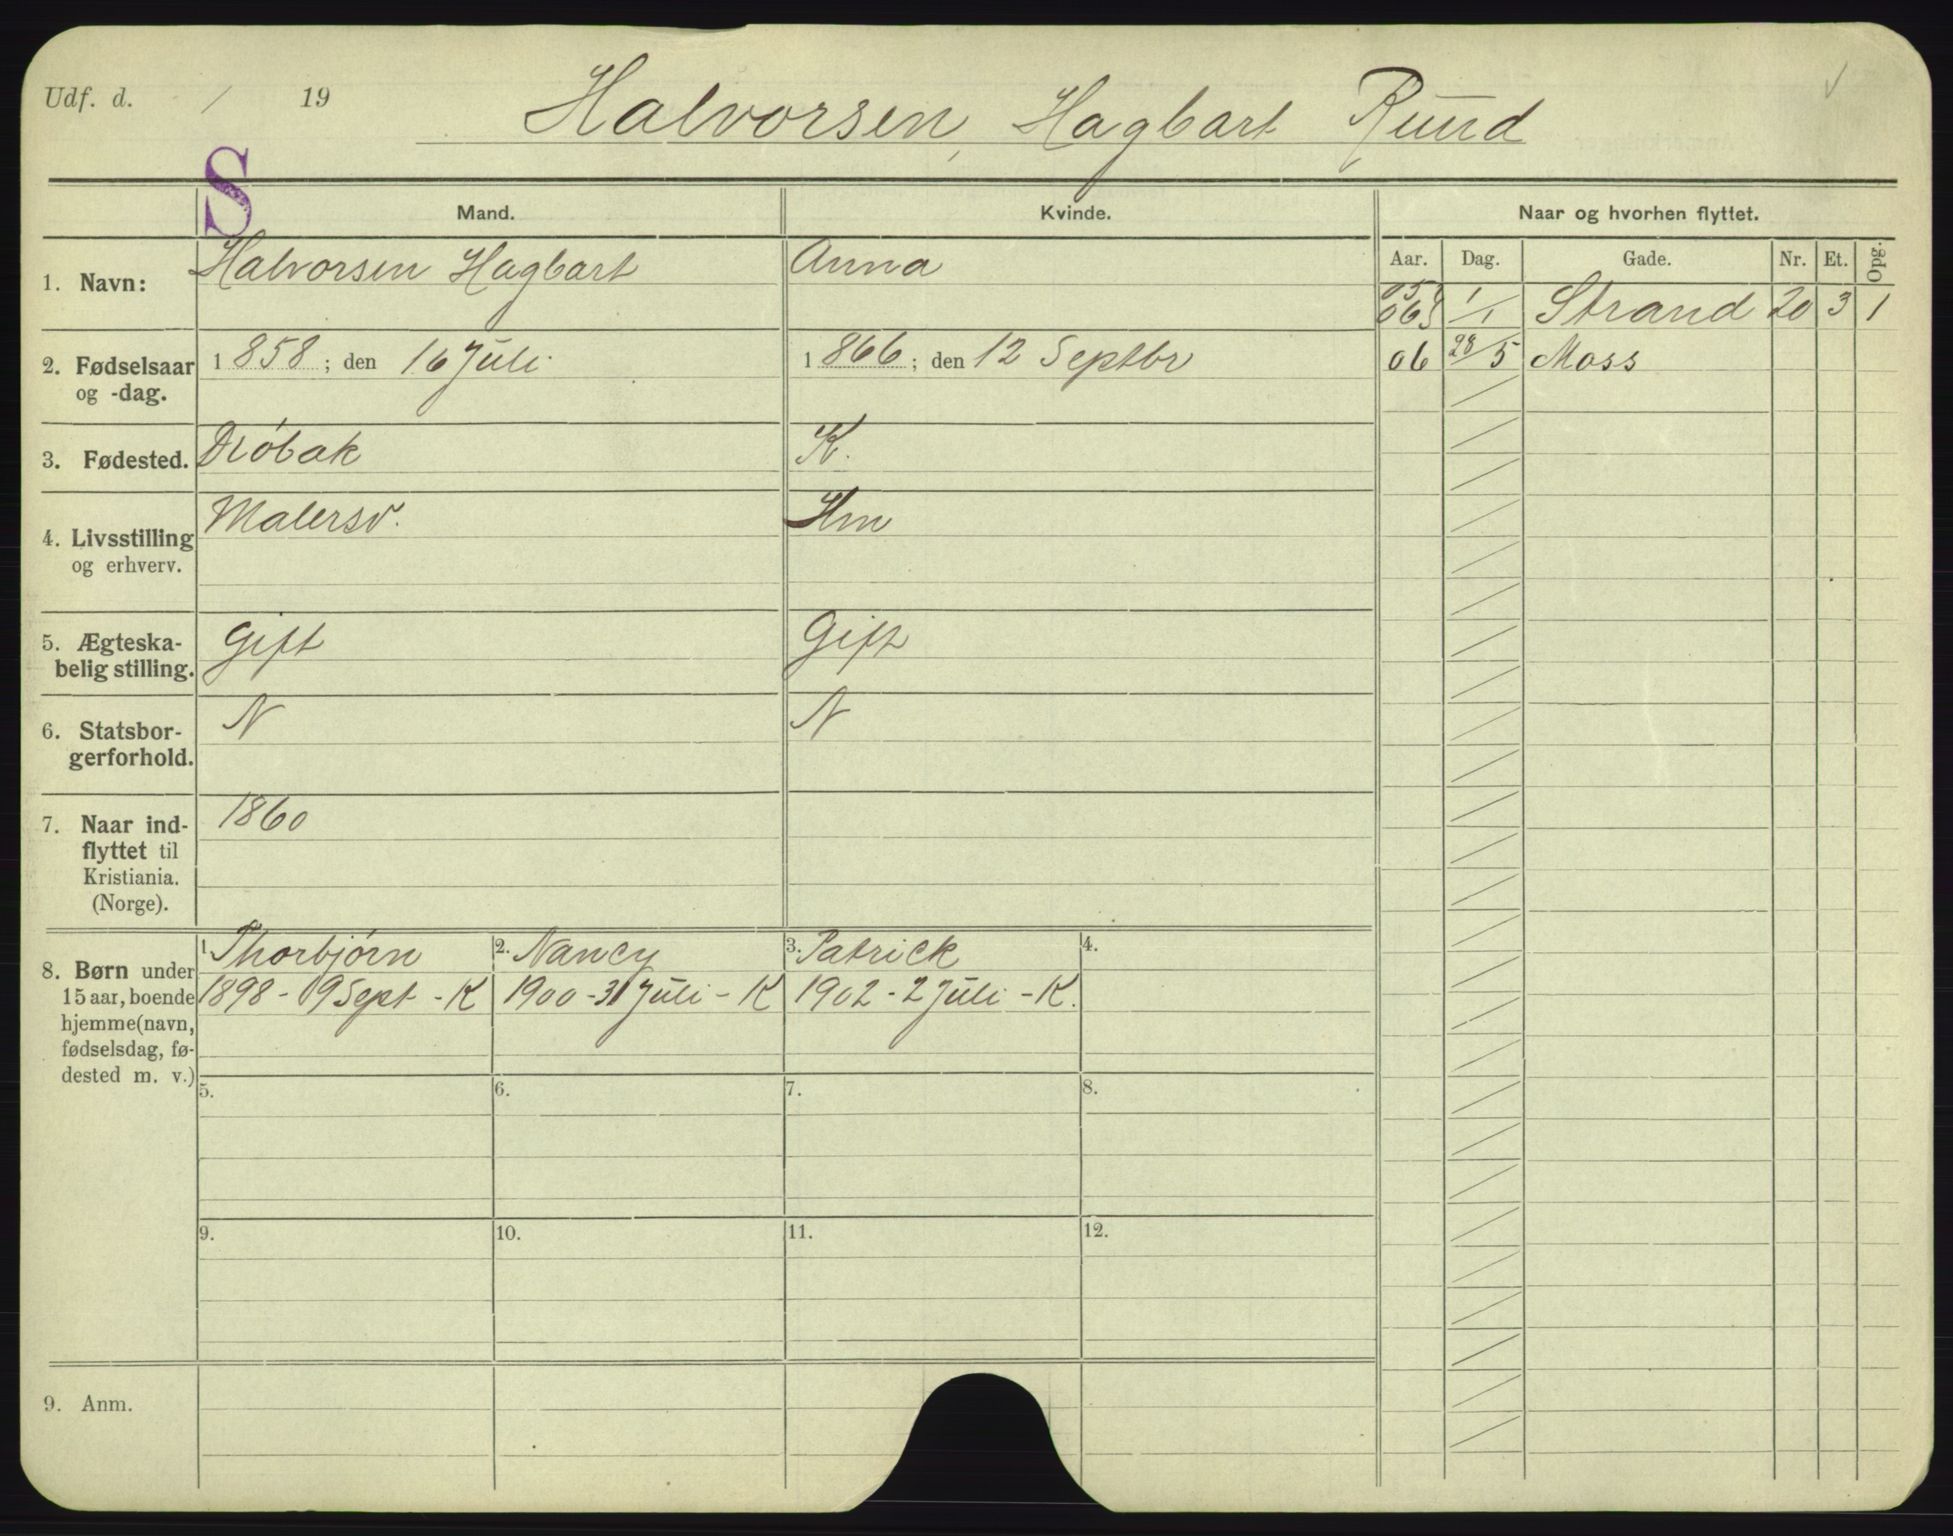 Udf. d. / 19
Halvorsen, Hagbart Ruud
S
Mand. Kvinde. Naar og hvorhen flyttet.
Aar. Dag. Gade. Nr. Et. Opg.
1. Navn: Halvorsen Hagbart Anna
05
06 1/1 Strand 20 3 1
06 28/5 Moss
2. Fødselsaar 1858; den 16 Juli 1866; den 12 Septbr
og -dag.
3. Fødested. Drøbak K.
4. Livsstilling Malersv. Hm
og erhverv.
5. Ægteska- Gift Gift
belig stilling.
6. Statsbor- N N
gerforhold.
7. Naar ind- 1860
flyttet til
Kristiania.
(Norge).
8. Børn under
15 aar, boende
hjemme (navn,
fødselsdag, fø-
dested m. v.)
1. Thorbjørn 2. Nancy 3. Patrick 4.
1898 - 9 Sept - K 1900 - 31 Juli - K 1902 - 2 Juli - K.
5. 6. 7. 8.
9. 10. 11. 12.
9. Anm.